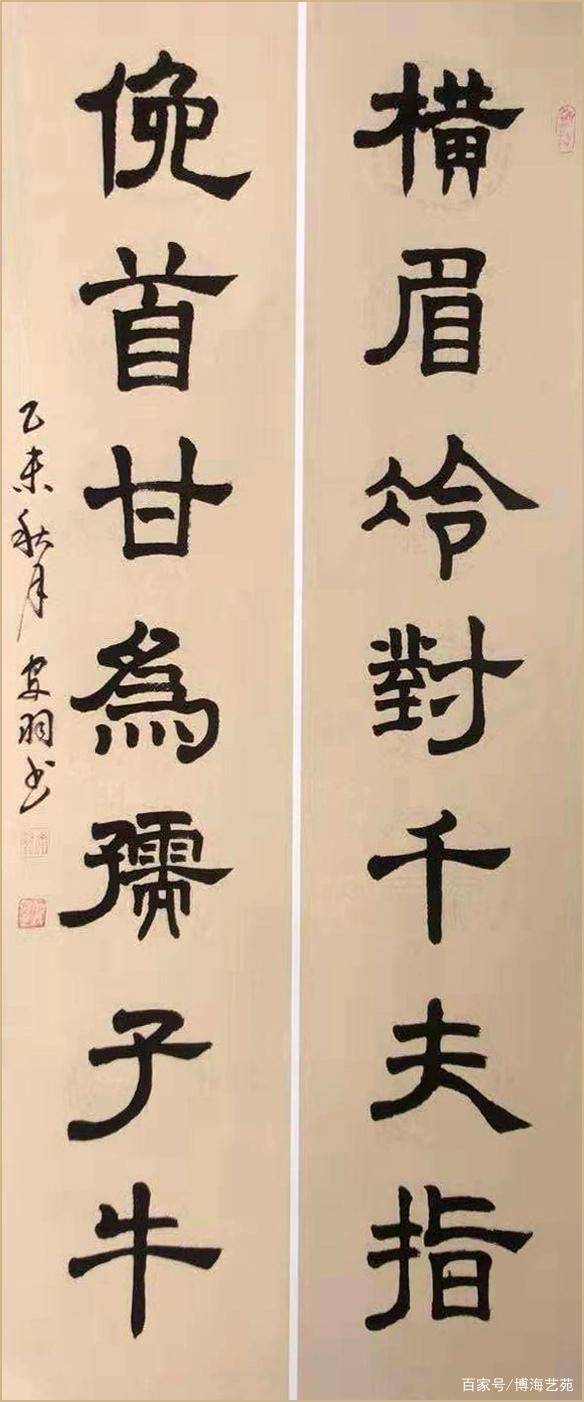 橫眉冷對千夫指
俛首甘為孺子牛
乙未秋月 羽书
百家号/博海艺苑